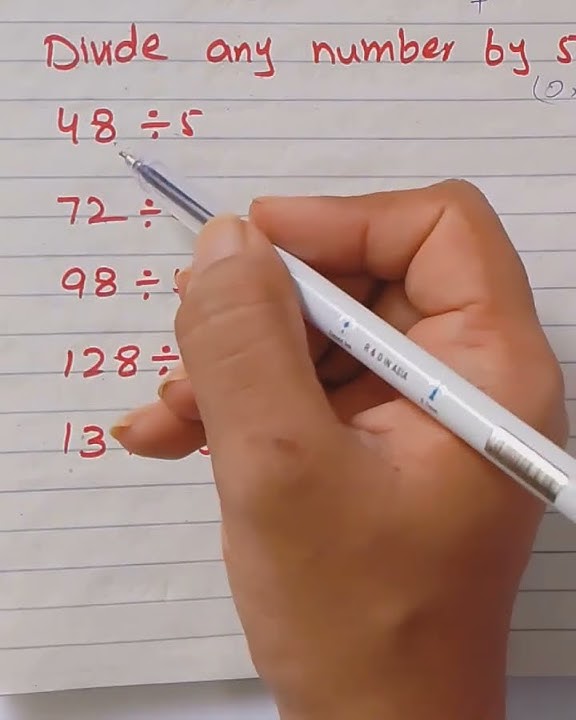 Divide any number by 5
48 ÷ 5
72 ÷
98 ÷
128 ÷
13
R & D IN ASIA